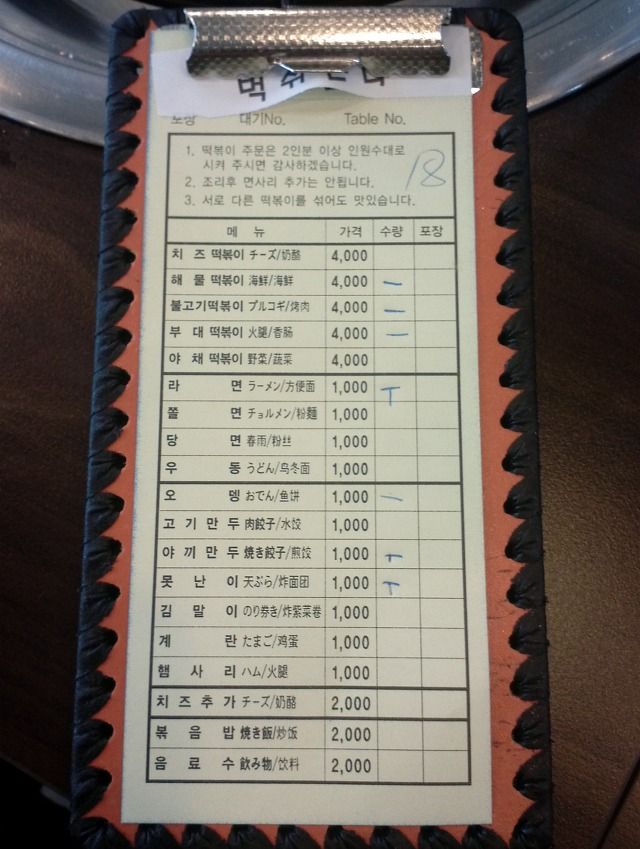 대기No. Table No.
18
1. 떡볶이 주문은 2인분 이상 인원수대로
시켜 주시면 감사하겠습니다.
2. 조리후 면사리 추가는 안됩니다.
3. 서로 다른 떡볶이를 섞어도 맛있습니다.
메 뉴 가격 수량 포장
치 즈 떡볶이 チーズ/奶酪 4,000
해 물 떡볶이 海鮮/海鲜 4,000 一
불고기떡볶이 プルコギ/烤肉 4,000 一
부 대 떡볶이 火腿/香肠 4,000 一
야 채 떡볶이 野菜/蔬菜 4,000
라 면 ラーメン/方便面 1,000 T
쫄 면 チョルメン/粉麵 1,000
당 면 春雨/粉丝 1,000
우 동 うどん/乌冬面 1,000
오 뎅 おでん/鱼饼 1,000 一
고 기 만 두 肉餃子/水饺 1,000
야 끼 만 두 焼き餃子/煎饺 1,000 T
못 난 이 天ぷら/炸面团 1,000 T
김 말 이 のり券き/炸紫菜卷 1,000
계 란 たまご/鸡蛋 1,000
햄 사 리 ハム/火腿 1,000
치 즈 추 가 チーズ/奶酪 2,000
볶 음 밥 焼き飯/炒饭 2,000
음 료 수 飲み物/饮料 2,000